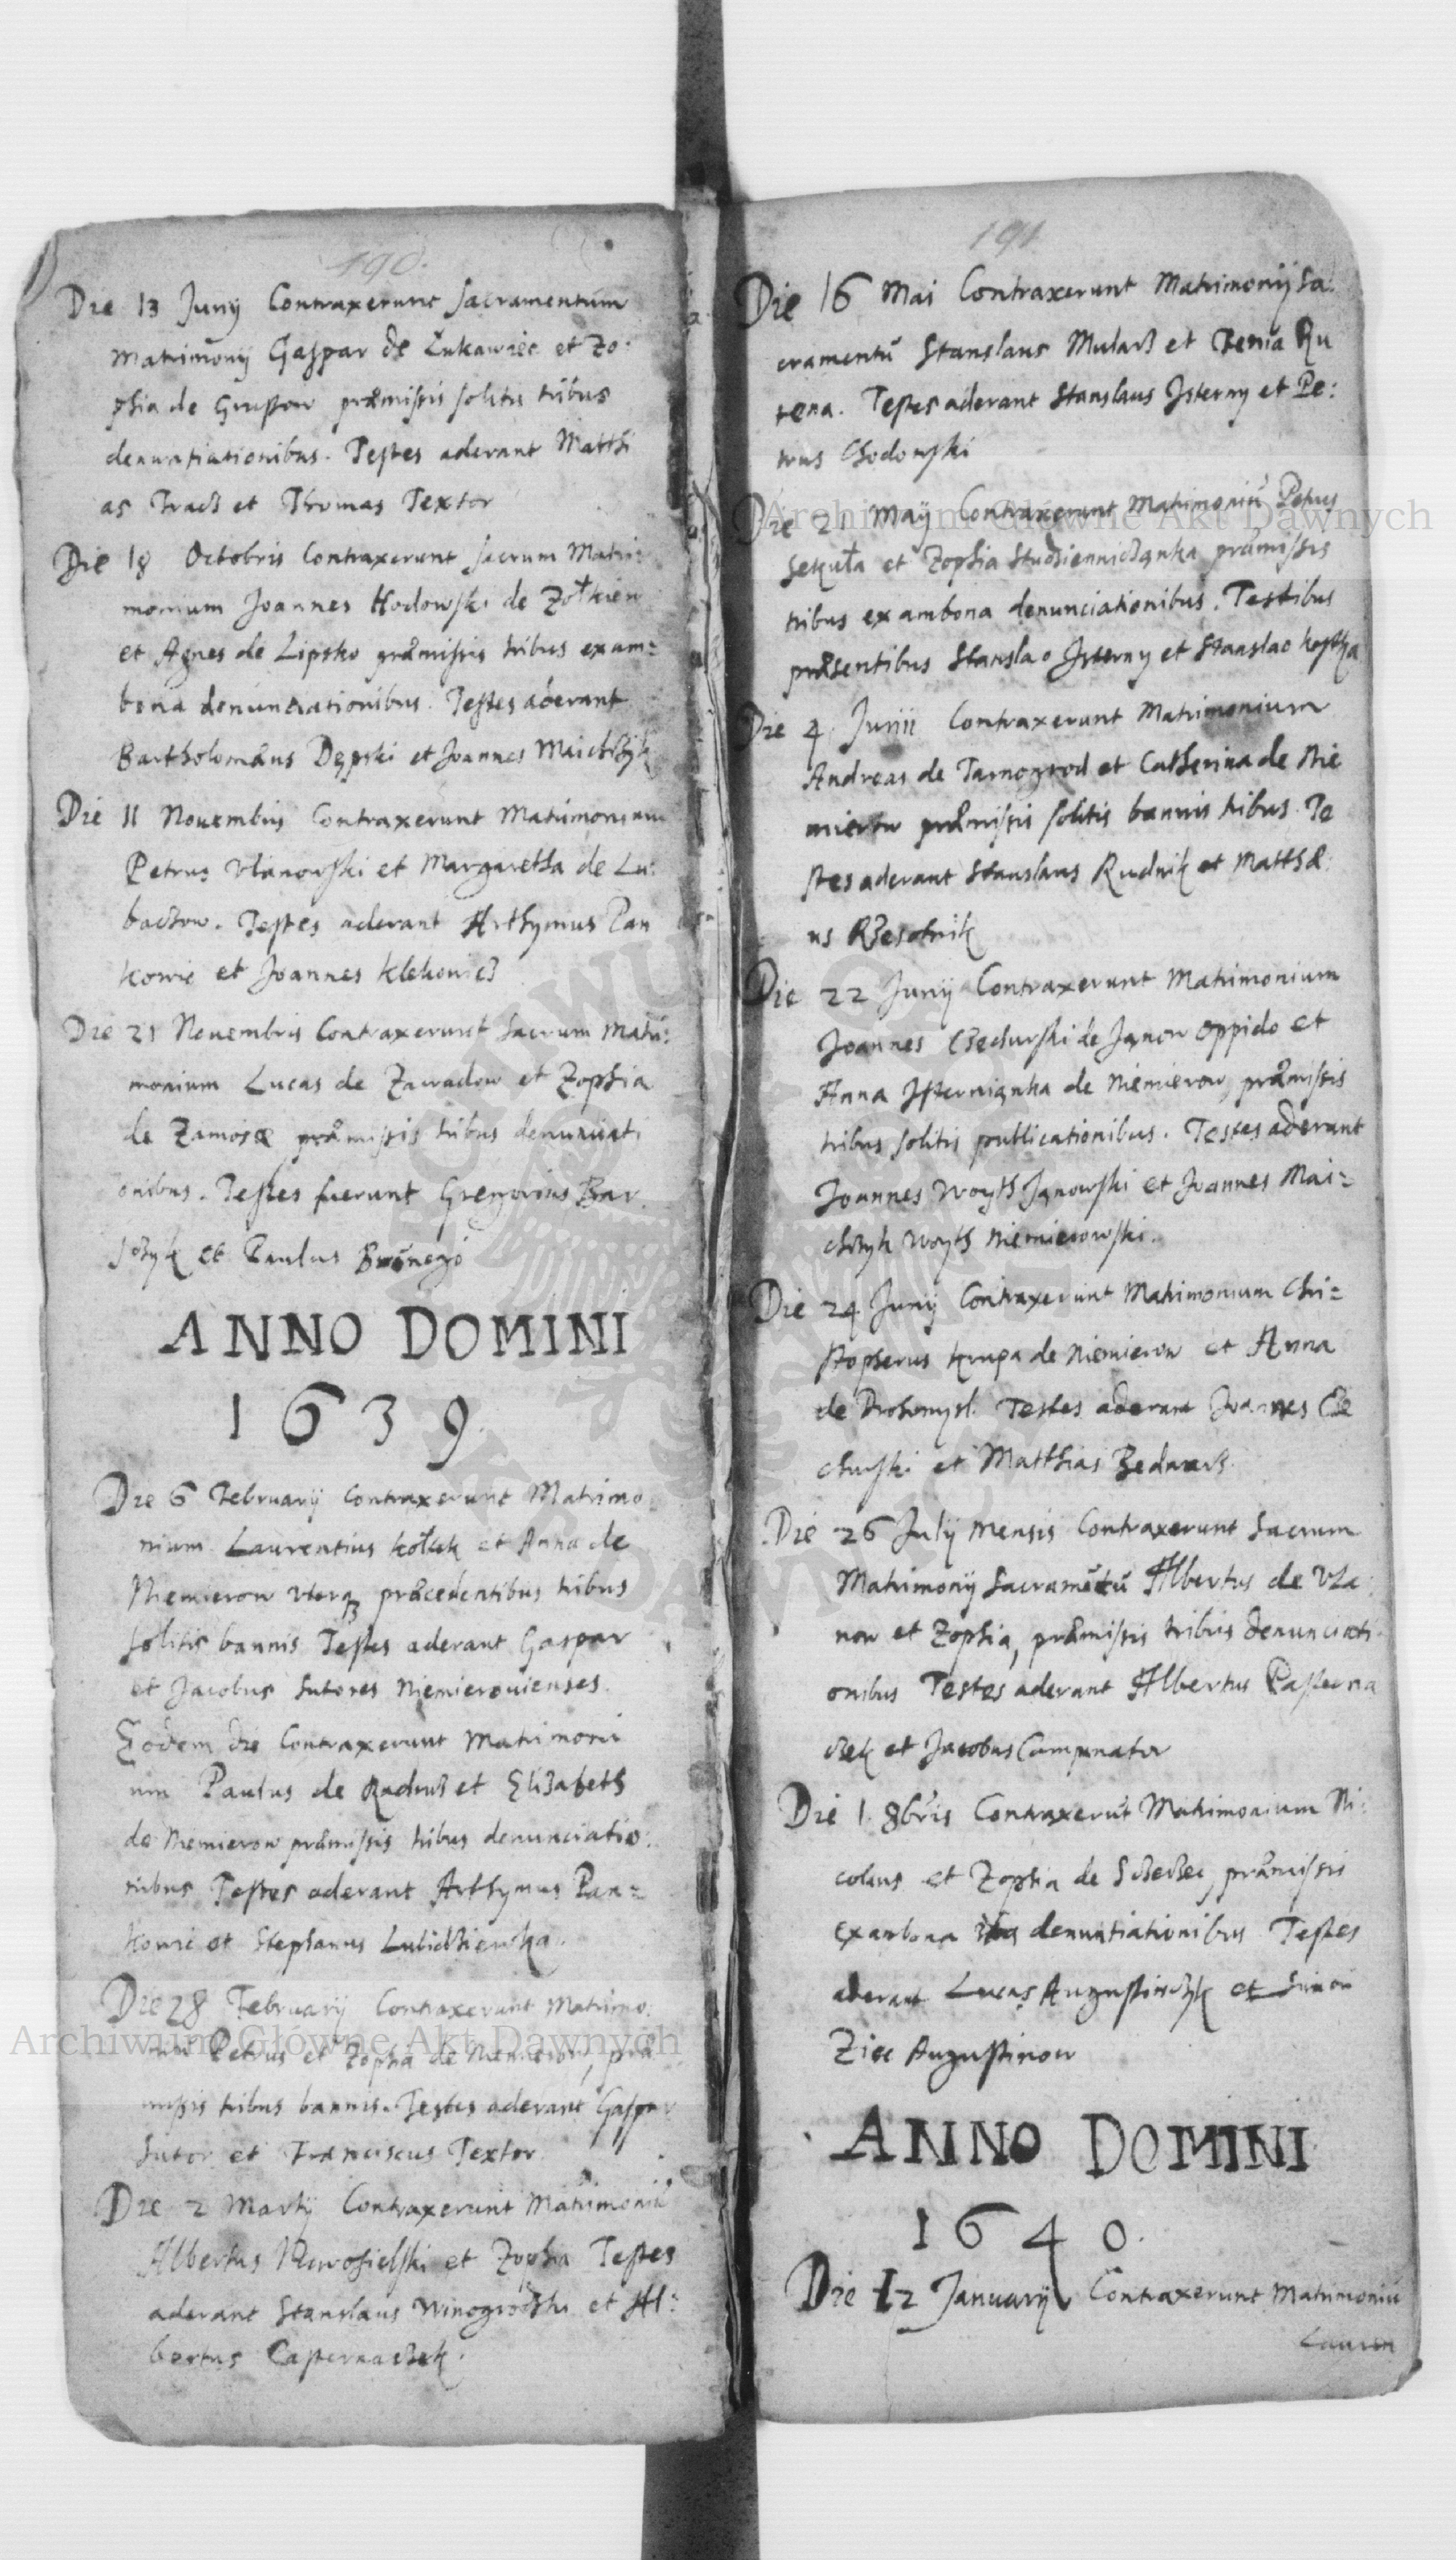 190.
Die 13 Junij Contraxerunt sacramentum
Matrimonij Gaspar de Łukawiec et Zo:
phia de Gruszow præmissis solitis tribus
denuntiationibus. Testes aderant Matthi
as Tracz et Thomas Textor
Die 18 Octobris Contraxerunt sacrum Matri:
monium Joannes Hodowski de Zołkiew
et Agnes de Lipsko præmissis tribus exam=
bona denuntiationibus. Testes aderant
Bartholomæus Dępski et Joannes Maichrzyk
Die 11 Nouembris Contraxerunt Matrimonium
Petrus Vlanowski et Margaretha de Lu:
baczow. Testes aderant Arthymus Pan
kowic et Joannes Klekowicz
Die 21 Nouembris Contraxerunt Sacrum Matri:
monium Lucas de Zawadow et Zophia
de Zamosæ præmissis tribus denuntiati
onibus. Testes fuerunt Gregorius Bar
szczyk et Paulus
ANNO DOMINI
1639.
Die 6 February Contraxerunt Matrimo
nium Laurentius Kołek et Anna de
Niemierow vterq præcedentibus tribus
solitis bannis Testes aderant Gaspar
et Jacobus Sutores Niemierouienses.
Eodem die Contraxerunt Matrimoni
um Paulus de Radruż et Elizabeth
de Niemierow præmissis tribus denunciatio:
nibus Testes aderant Arthymus Pan=
kowic et Stephanus
Die 28 February Contraxerunt Matrimo
niū Petrus et Zophia de Niemierow, præ
missis tribus bannis. Testes aderant Gaspar
Sutor et Franciscus Textor
Die 2 Martij Contraxerunt Matrimoniū
Albertus Nowosielski et Zophia Testes
aderant Stanslaus Winogrodzki et Al:
bertus Pasternaczek.
191
Die 16 Mai Contraxerunt Matrimonij Sa:
cramentū Stanslaus Mularz et Fenia Ru
tena. Testes aderant Stanslaus Jsterny et Pe:
trus Chodowski
Die 21 Maij Contraxerunt Matrimoniū Petrus
Sekuła et Zophia Studzienniczanka præmissis
tribus ex ambona denunciationibus. Testibus
præsentibus Stanslao Jsterny et Stanslao Kostka
Die 4 Junii Contraxerunt Matrimonium
Andreas de Tarnogrod et Catherina de Nie
mierow præmissis solitis bannis tribus Te
stes aderant Stanslaus Rudnik et Matthæ
us Rzesotnik
Die 22 Junij Contraxerunt Matrimonium
Joannes Czechurski de Janow oppido et
Anna Jsternianka de Niemierow, præmissis
tribus solitis publicationibus. Testes aderant
Joannes Woyth Janowski et Joannes Mai=
chrzyk Woyth Niemierowski.
Die 24 Junij Contraxerunt Matrimonium Chri=
stopherus Krupa de Niemierow et Anna
de Drohomysl. Testes aderant Joannes Cze
churski et Matthias Bednarz.
Die 26 Julij mensis Contraxerunt Sacrum
Matrimonij Sacramētū Albertus de Vla
now et Zophia, præmissis tribus denunciati
onibus Testes aderant Albertus Pasterna
czek et Jacobus Campanator
Die 1 8bris Contraxerūt Matrimonium Ni:
colaus et Zophia de Szczerzec, præmissis
exambona denuntiationibus Testes
aderant Lucas Augustinczyk et Simon
Ziec Augustinow
ANNO DOMINI
1640.
Die 12 January Contraxerunt Matrimoniū
Lauren
Archiwum Główne Akt Dawnych
Archiwum Główne Akt Dawnych